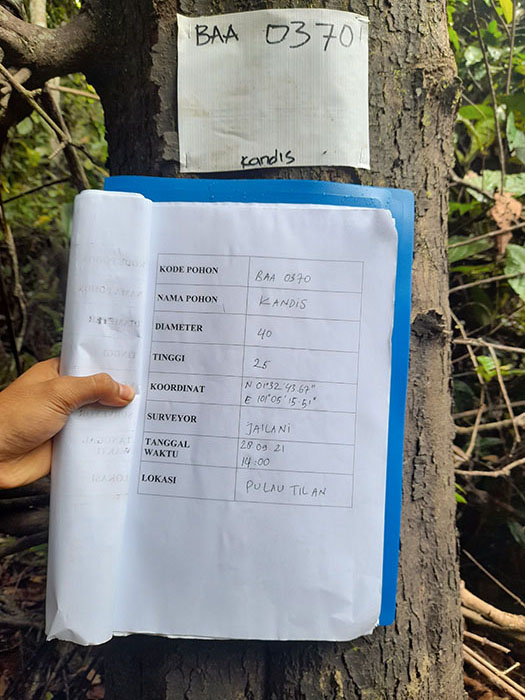 BAA 0370
Kandis
KODE POHON BAA 0370
NAMA POHON KANDIS
DIAMETER 40
TINGGI 25
KOORDINAT N 01°32'43.67"
E 101°05'15.51"
SURVEYOR JAILANI
TANGGAL 28 09 21
WAKTU 14:00
LOKASI PULAU TILAN